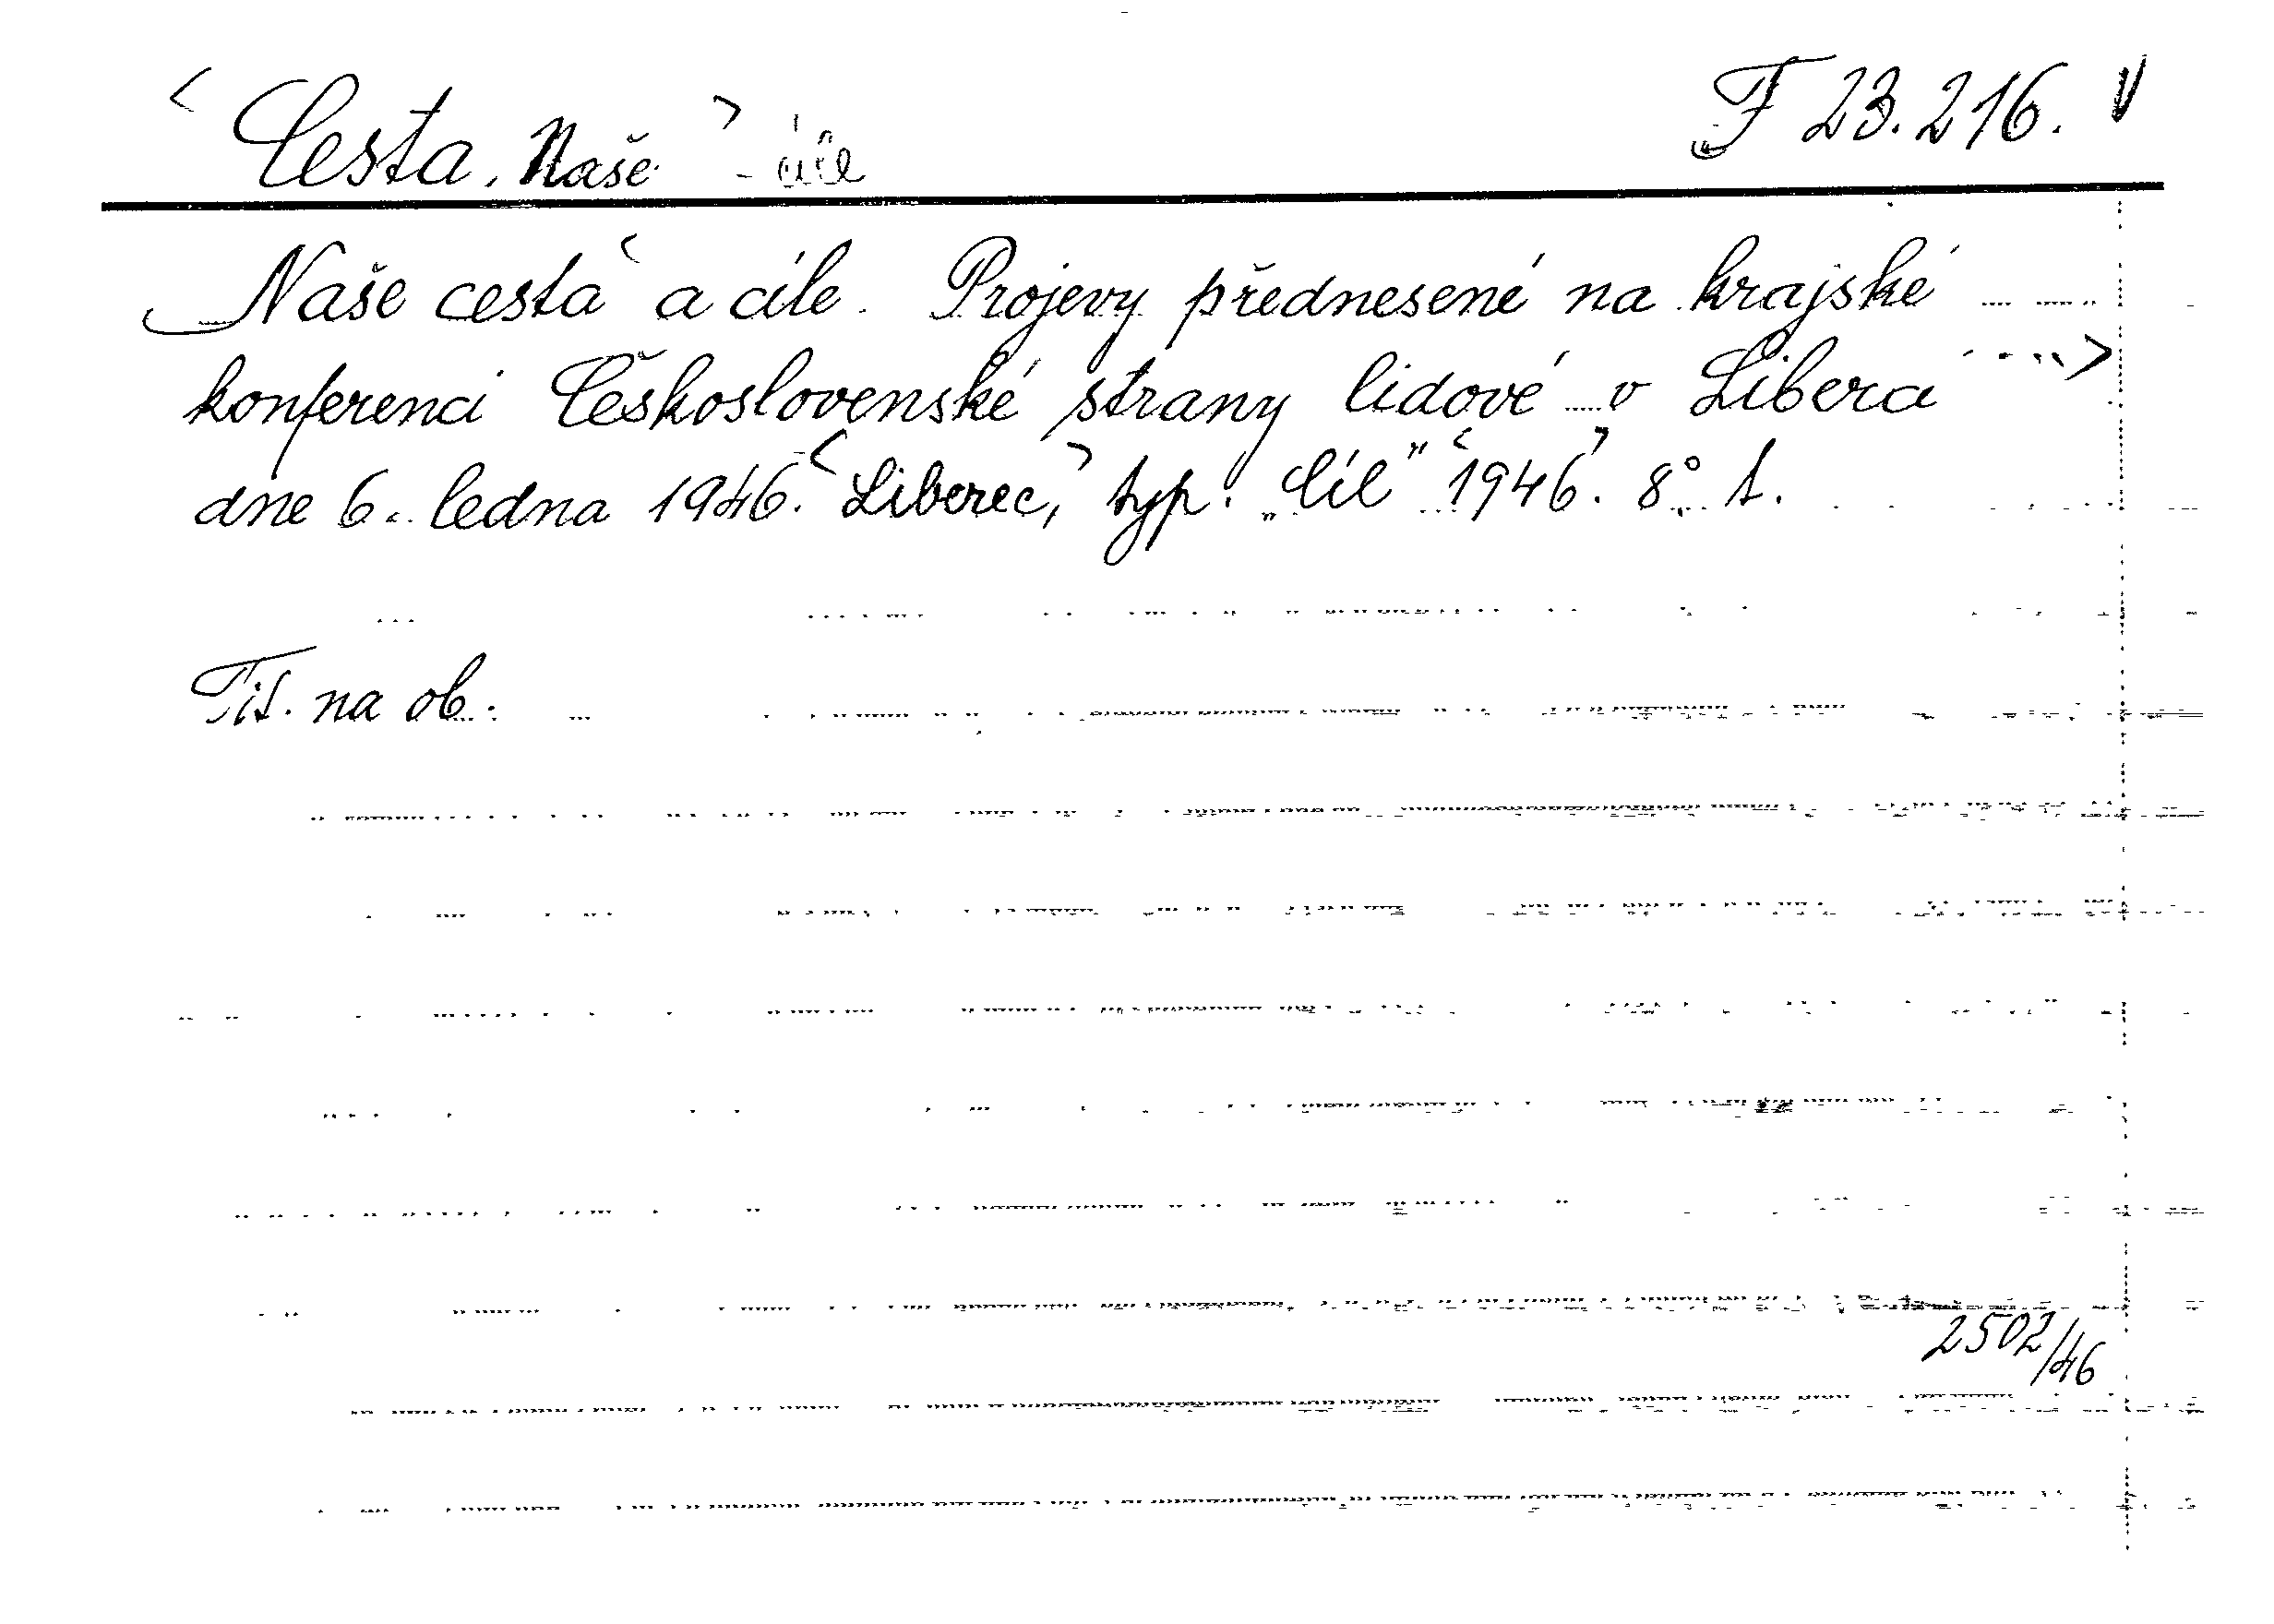 < Cesta, Naše > - cíle F 23.216. V
Naše cesta < a cíle. Projevy přednesené na krajské
konferenci Československé strany lidové v Liberci >
dne 6. ledna 1946. < Liberec, > typ. „Cíl" < 1946 >. 8°. 1.
Tit. na ob.
2502/46